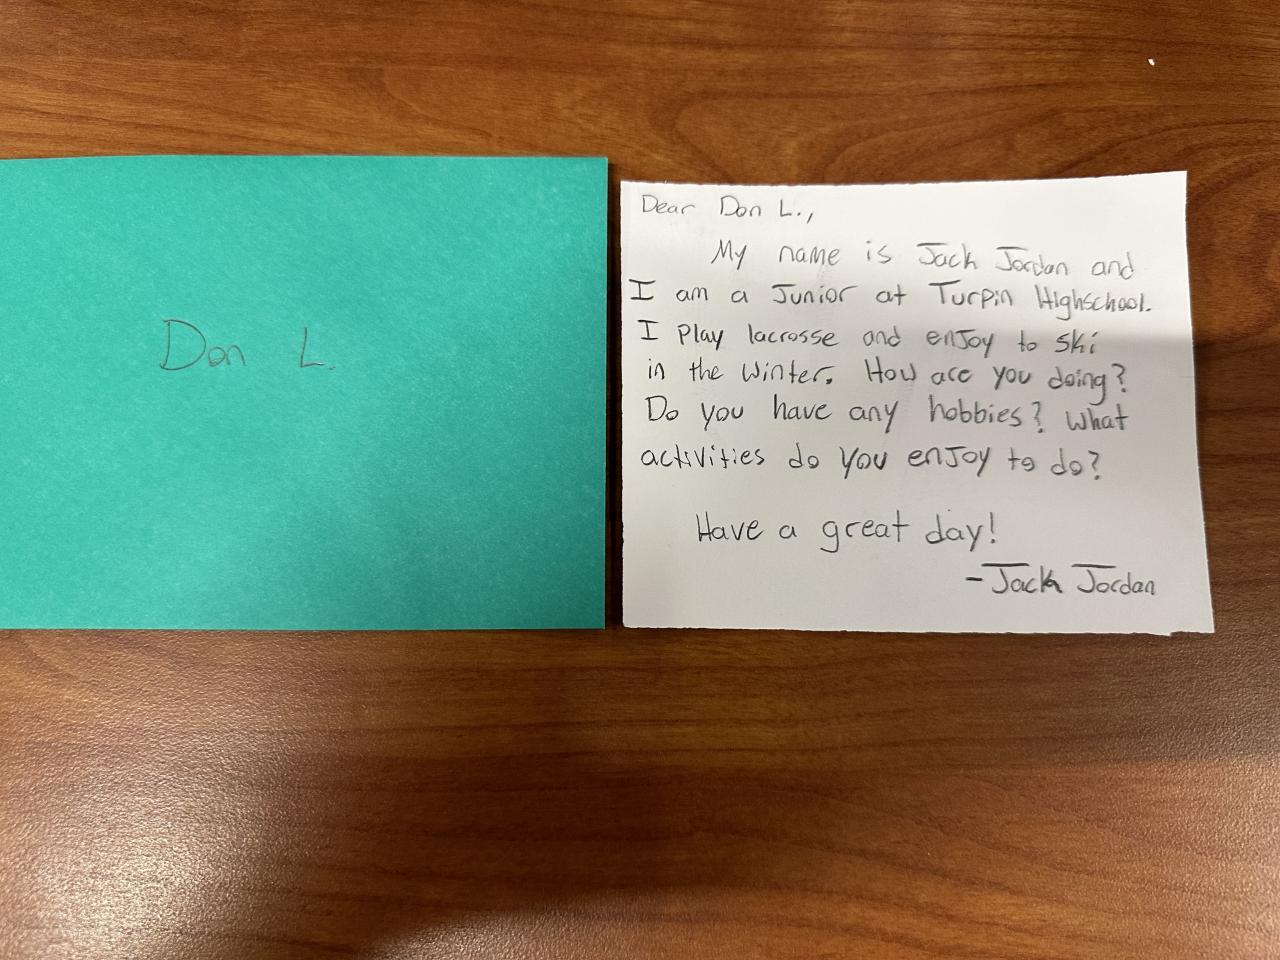 Don L.
Dear Don L.,
My name is Jack Jordan and
I am a Junior at Turpin Highschool.
I Play lacrosse and enjoy to ski
in the winter. How are you doing?
Do you have any hobbies? What
activities do you enjoy to do?
Have a great day!
- Jack Jordan